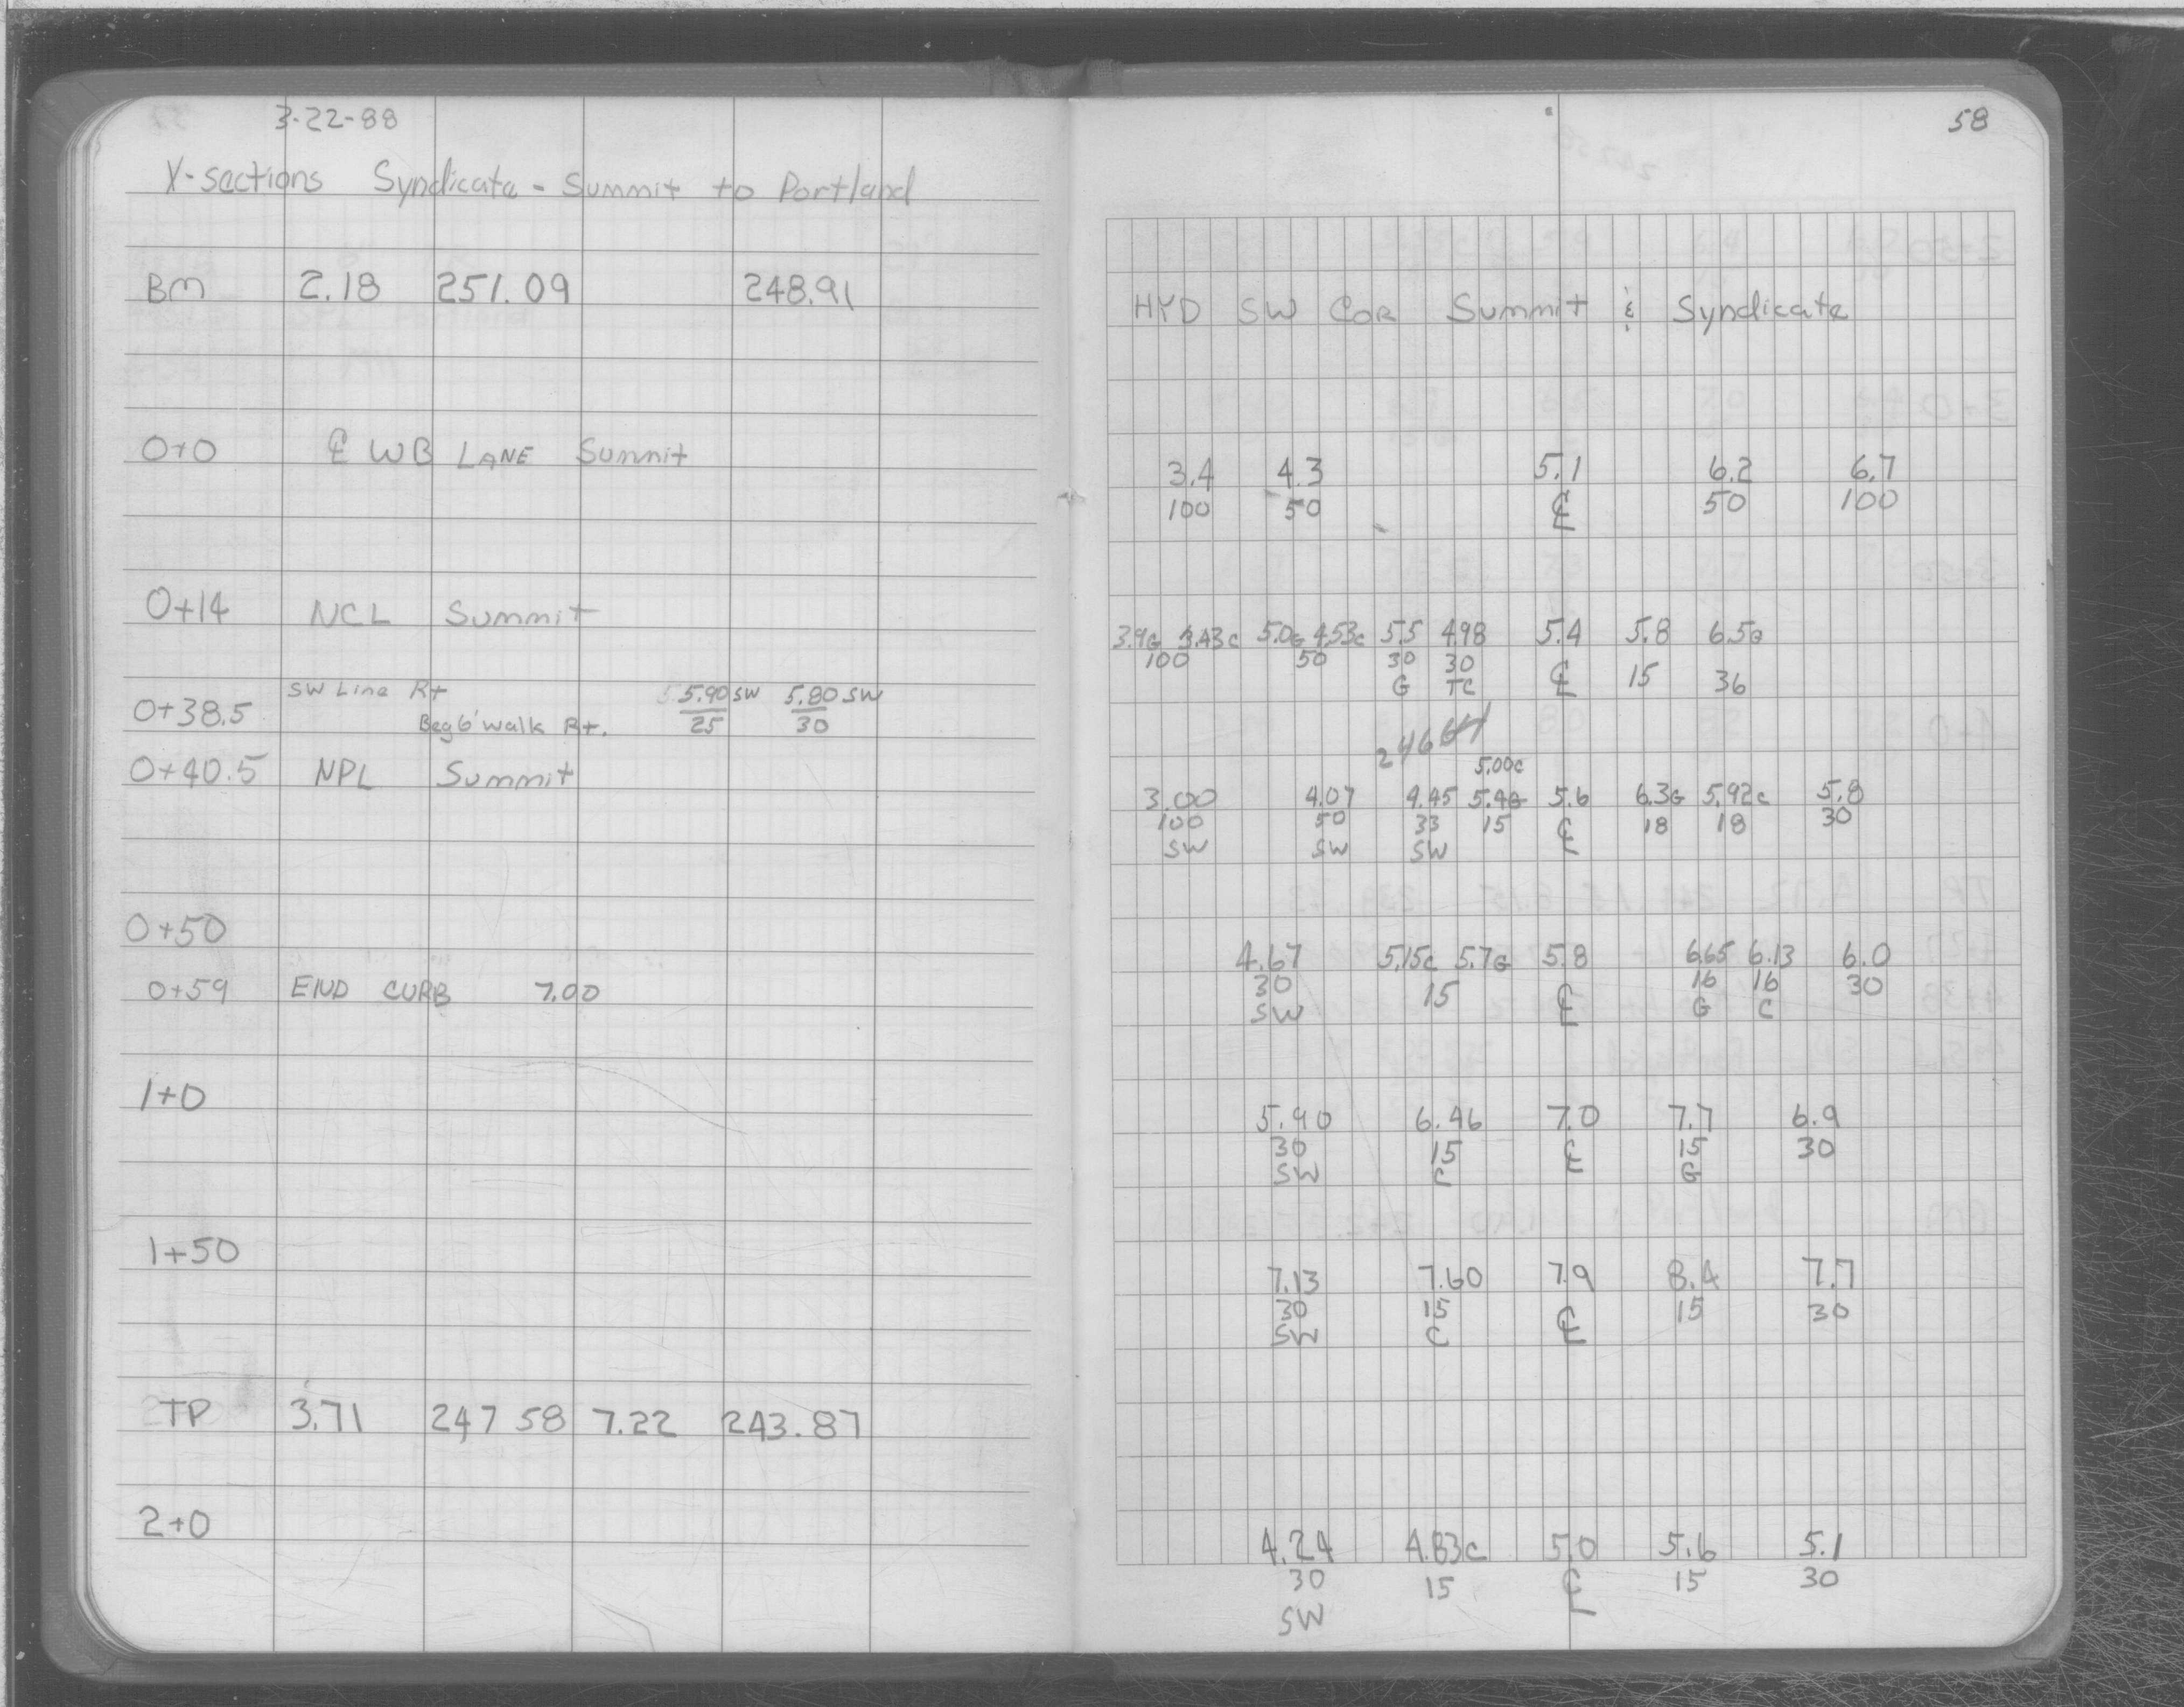 3-22-88
X-sections Syndicate - Summit to Portland
BM 2.18 251.09 248.91
0+0 ℄ WB LANE Summit
0+14 NCL Summit
SW Line Rt 5.90 SW 5.80 SW
0+38.5 Beg 6' walk Rt. 25 30
0+40.5 NPL Summit
0+50
0+59 END CURB 7.00
1+0
1+50
TP 3.71 247 58 7.22 243.87
2+0
58
HYD SW COR Summit & Syndicate
3.4 4.3 5.1 6.2 6.7
100 50 ℄ 50 100
3.9G 3.43C 5.0G 4.53C 5.5 4.98 5.4 5.8 6.5G
100 50 30 30 ℄ 15 36
G TC
5.00C
3.00 4.07 4.45 5.4G 5.6 6.3G 5.92C 5.8
100 50 33 15 ℄ 18 18 30
SW SW SW
4.67 5.15C 5.7G 5.8 6.65 6.13 6.0
30 15 ℄ 16 16 30
SW G C
5.90 6.46 7.0 7.7 6.9
30 15 ℄ 15 30
SW C G
7.13 7.60 7.9 8.4 7.7
30 15 ℄ 15 30
SW C
4.24 4.83C 5.0 5.6 5.1
30 15 ℄ 15 30
SW